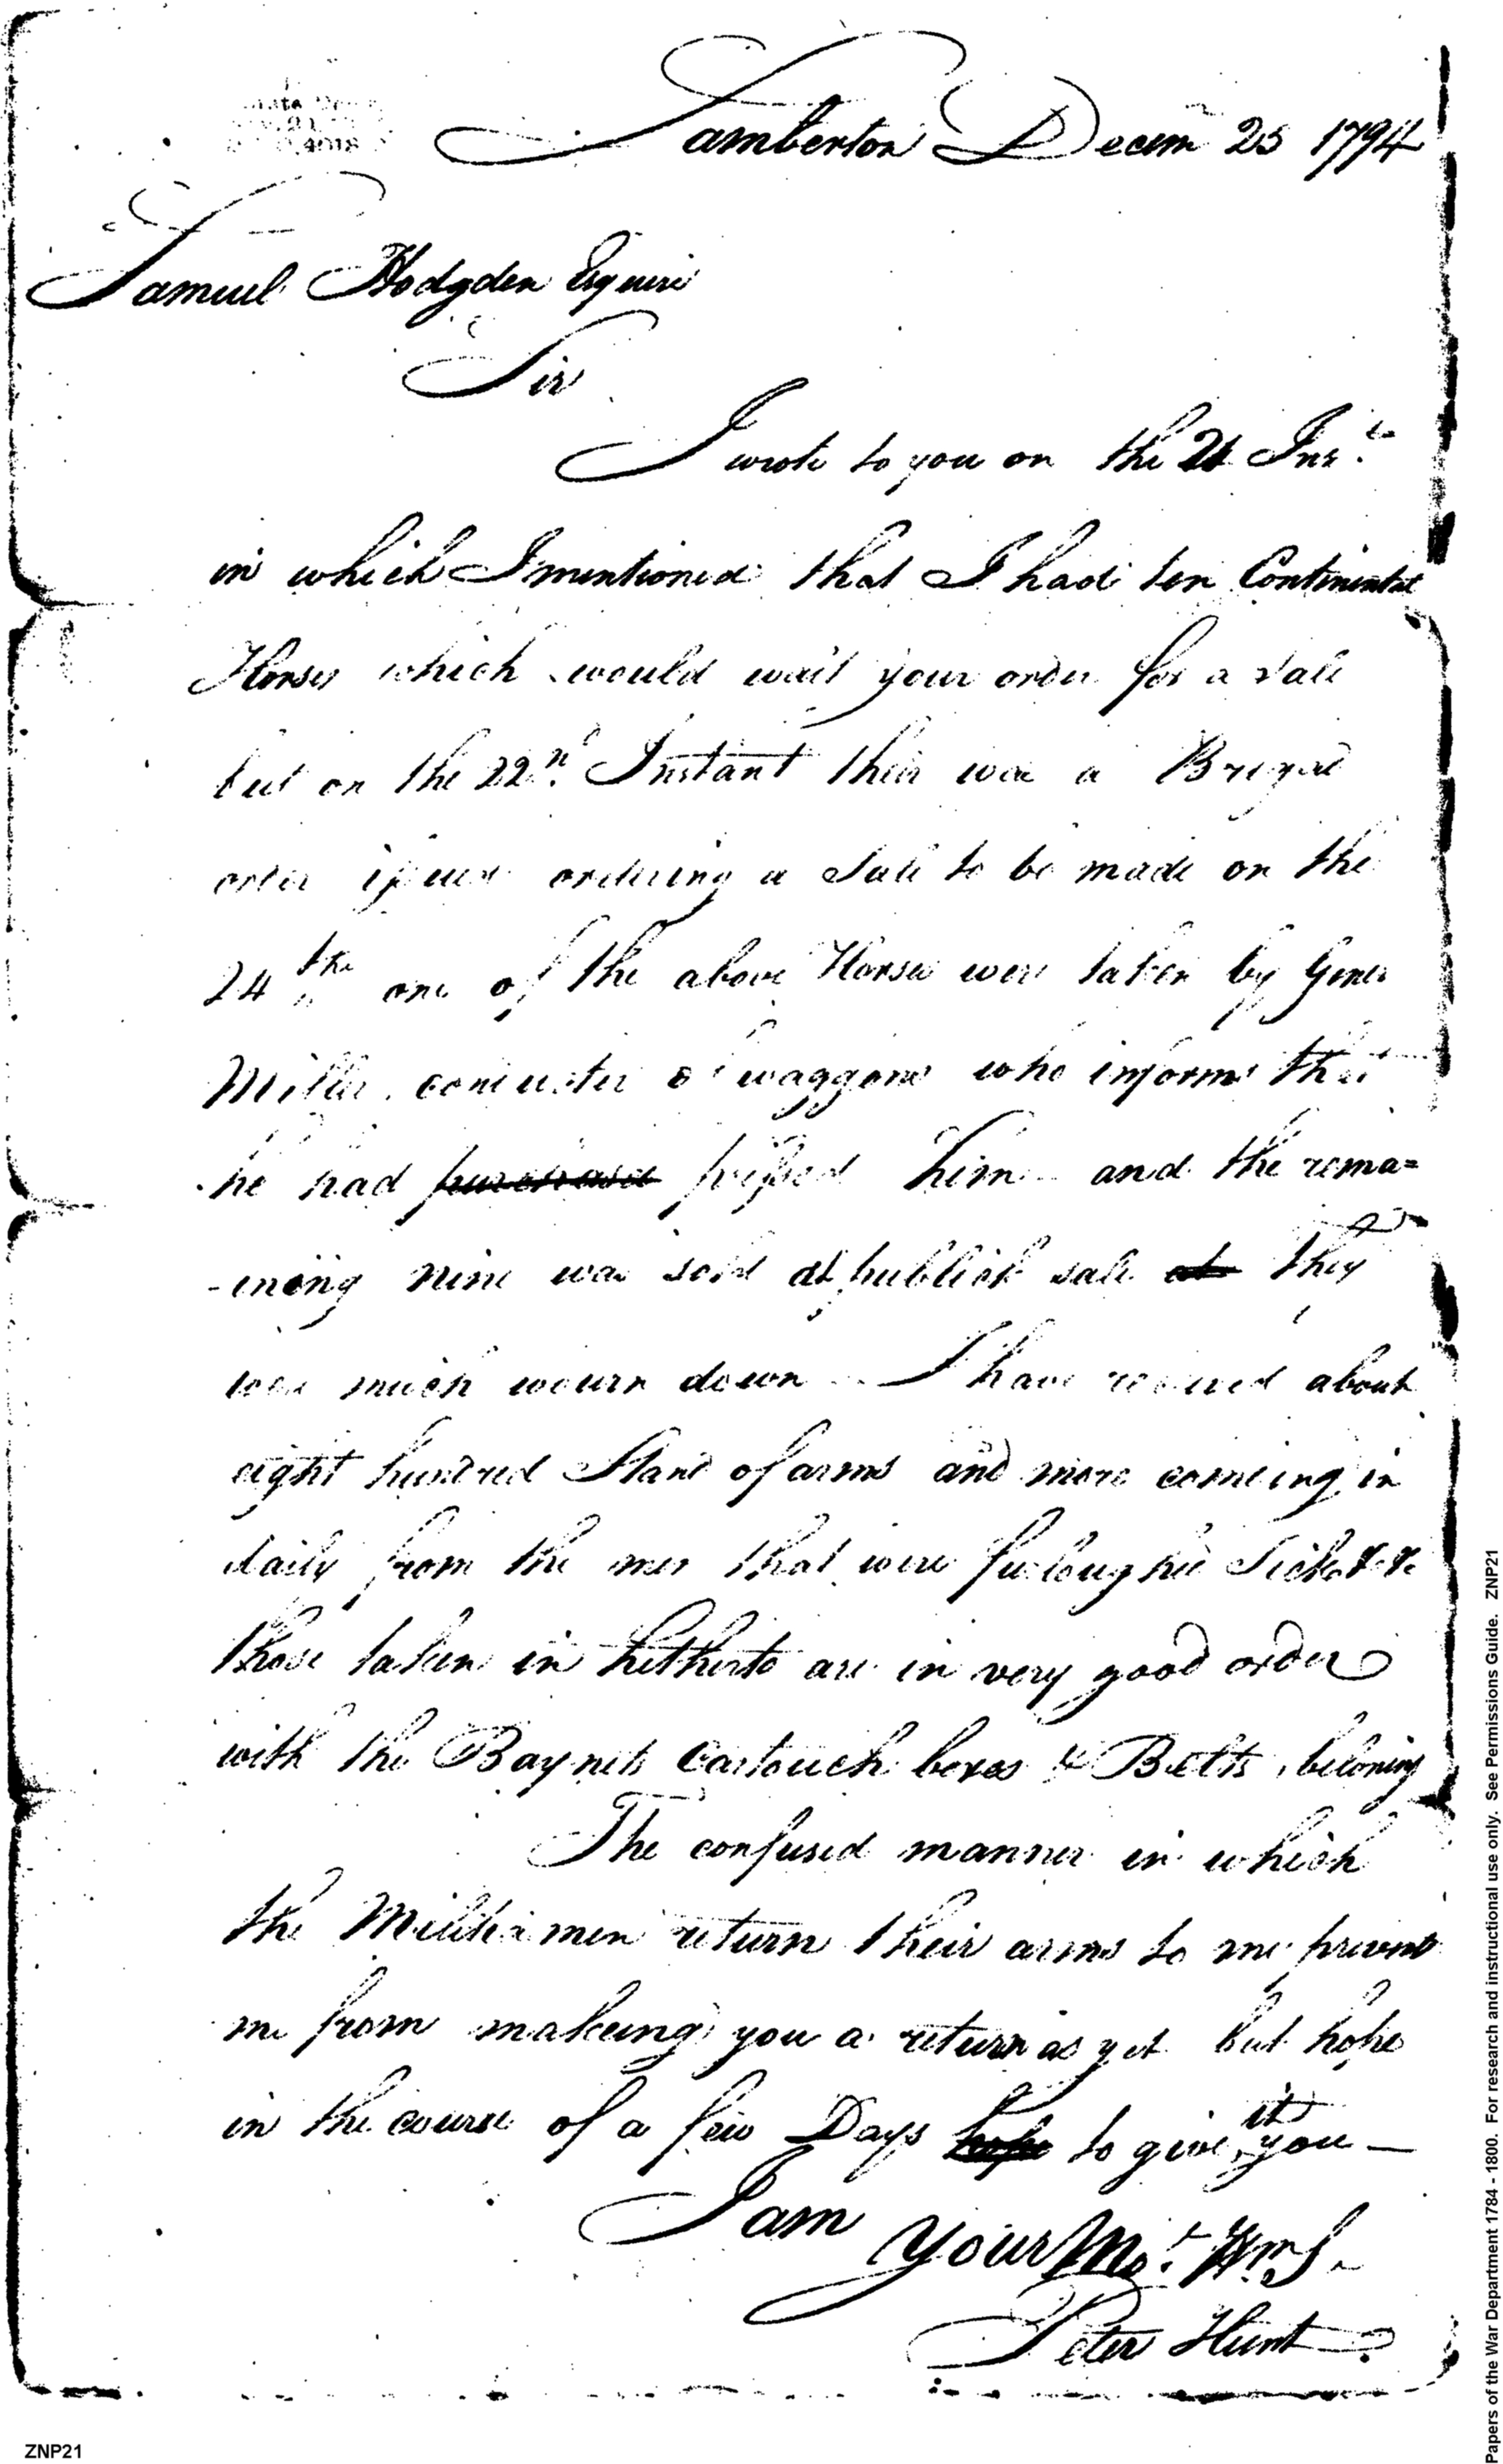 Lamberton Decem 25 1794
Samuel Hodgden Esquire
Sir
I wrote to you on the 21 Inst.
in which I mentioned that I had ten Continental
Horses which would wait your order for a Sale
but on the 22nd. Instant their was a Brigad
order issued ordering a Sale to be made on the
24th one of the above Horses were taken by
Miller conductor of waggons who informs that
he had purchased pressed him and the rema=
-ening nine was sold at publick sale at they
were much wourn down I have received about
eight hundred Stand of arms and more comeing in
daily from the men that were furloughed Sick &c &c
those taken in hetherto are in very good order
with the Baynets Cartouch boxes & Belts beloning
The confused manner in which
the Militia men return their arms to me prevent
me from makeing you a return as yet but hope
in the course of a few Days hope to give it you —
I am
your Mot. Hm S
Peter Hunt
Papers of the War Department 1784 - 1800. For research and instructional use only. See Permissions Guide. ZNP21
ZNP21